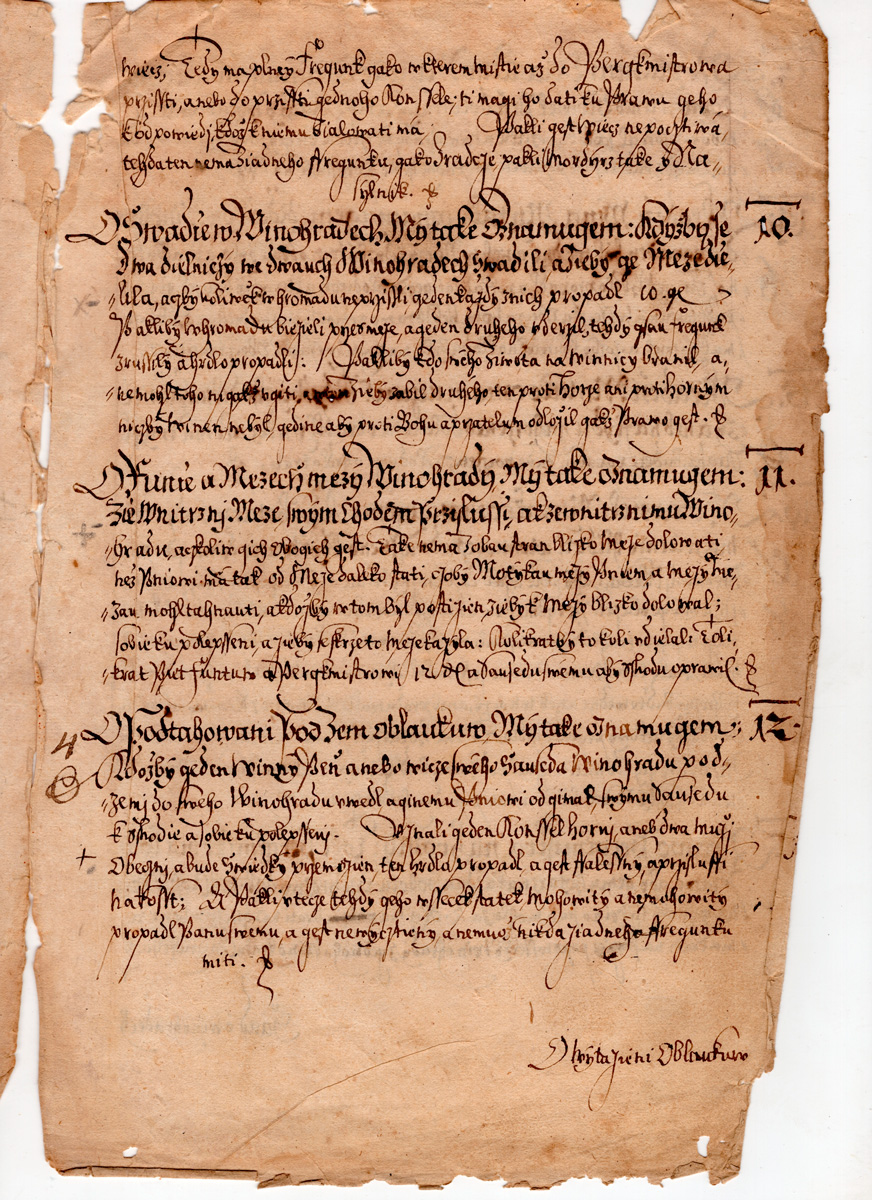 wiecz, Tedy ma plney Fregunk gako w kterem mistie až do Pergkmistrowa
przissti, anebo do przissti gednoho Konssele; ti magi ho dati ku Prawu geho
k odpowiedj, kdož k niemu žialowati má; Pakli gest wiecz nepoctiwá,
tehda ten nema žiadneho Fregunku, gako zradcze pakli mordyrz take y Na=
sylnik.
O Swadie w Winohradech My take oznamugem: Kdyžby se 10.
dwa dielniczy we dwauch Winohradech swadili a žieby ge Meze die=
lila, a gkyž koliwiek w hromadu neprzissli geden každy z nich propadl 10. ge
Pakliby w hromadu biezieli przes meze, a geden druheho vderzil, tehdy gsau Fregunk
zrussily a hrdlo propadli: Pakliby kdo sweho žiwota na winniczy branil, a=
=nemohl toho nigakž vgiti, žieby zabil druheho ten proti Horze ani proti Hornym
niczby winen nebyl, gedine aby proti Bohu a przatelum odložil gakž Prawo gest.
O Funie a Mezech mezy Winohrady My take oznamugem: 11.
Zie Wnitrznj Meze swym Chodem przislussi, ak zewnitrznimu Wino=
=hradu, aczkoliw gich obogich gest. Take nema z obau stran blizko meze dolowati
než Pniowi má tak od Meze daleko stati, czoby Motykau mezy Pniem a mezy Me=
=zau mohl tahnauti, a kdožby w tom byl postižien, žieby k Mezy blizko dolowal;
sobie ku polepsseni a žieby se skrze to meze kazyla: Kolikratby to koli vdielal: Toli=
=krat Piet funtuw a Pergkmistrowi 12 a Sausedu swemu aby sskodu oprawil.
O Podtahowani pod zem oblaukuw, My take oznamugem: 12.
4 Kdožby geden Winny Peň anebo wicze sweho Sauseda Winohradu pod=
=zemj do sweho Winohradu vwedl a ginemu Pniowi odgimal, swymu Sausedu
k sskodie a sobie ku polepssenj. Poznali geden Konssel horni, aneb dwa muži
+ Obecznj, a bude swiedky przemožien, ten hrdla propadl, a gest ffalessny, a przislussi
na kosst; A Pakli vtecze, tehdy geho wssecek statek mohowity a nemohowity
propadl Panu swemu, a gest newyczisteny a nemuož nikda žiadneho Fregunku
miti.
O wytaženi Oblaukuw